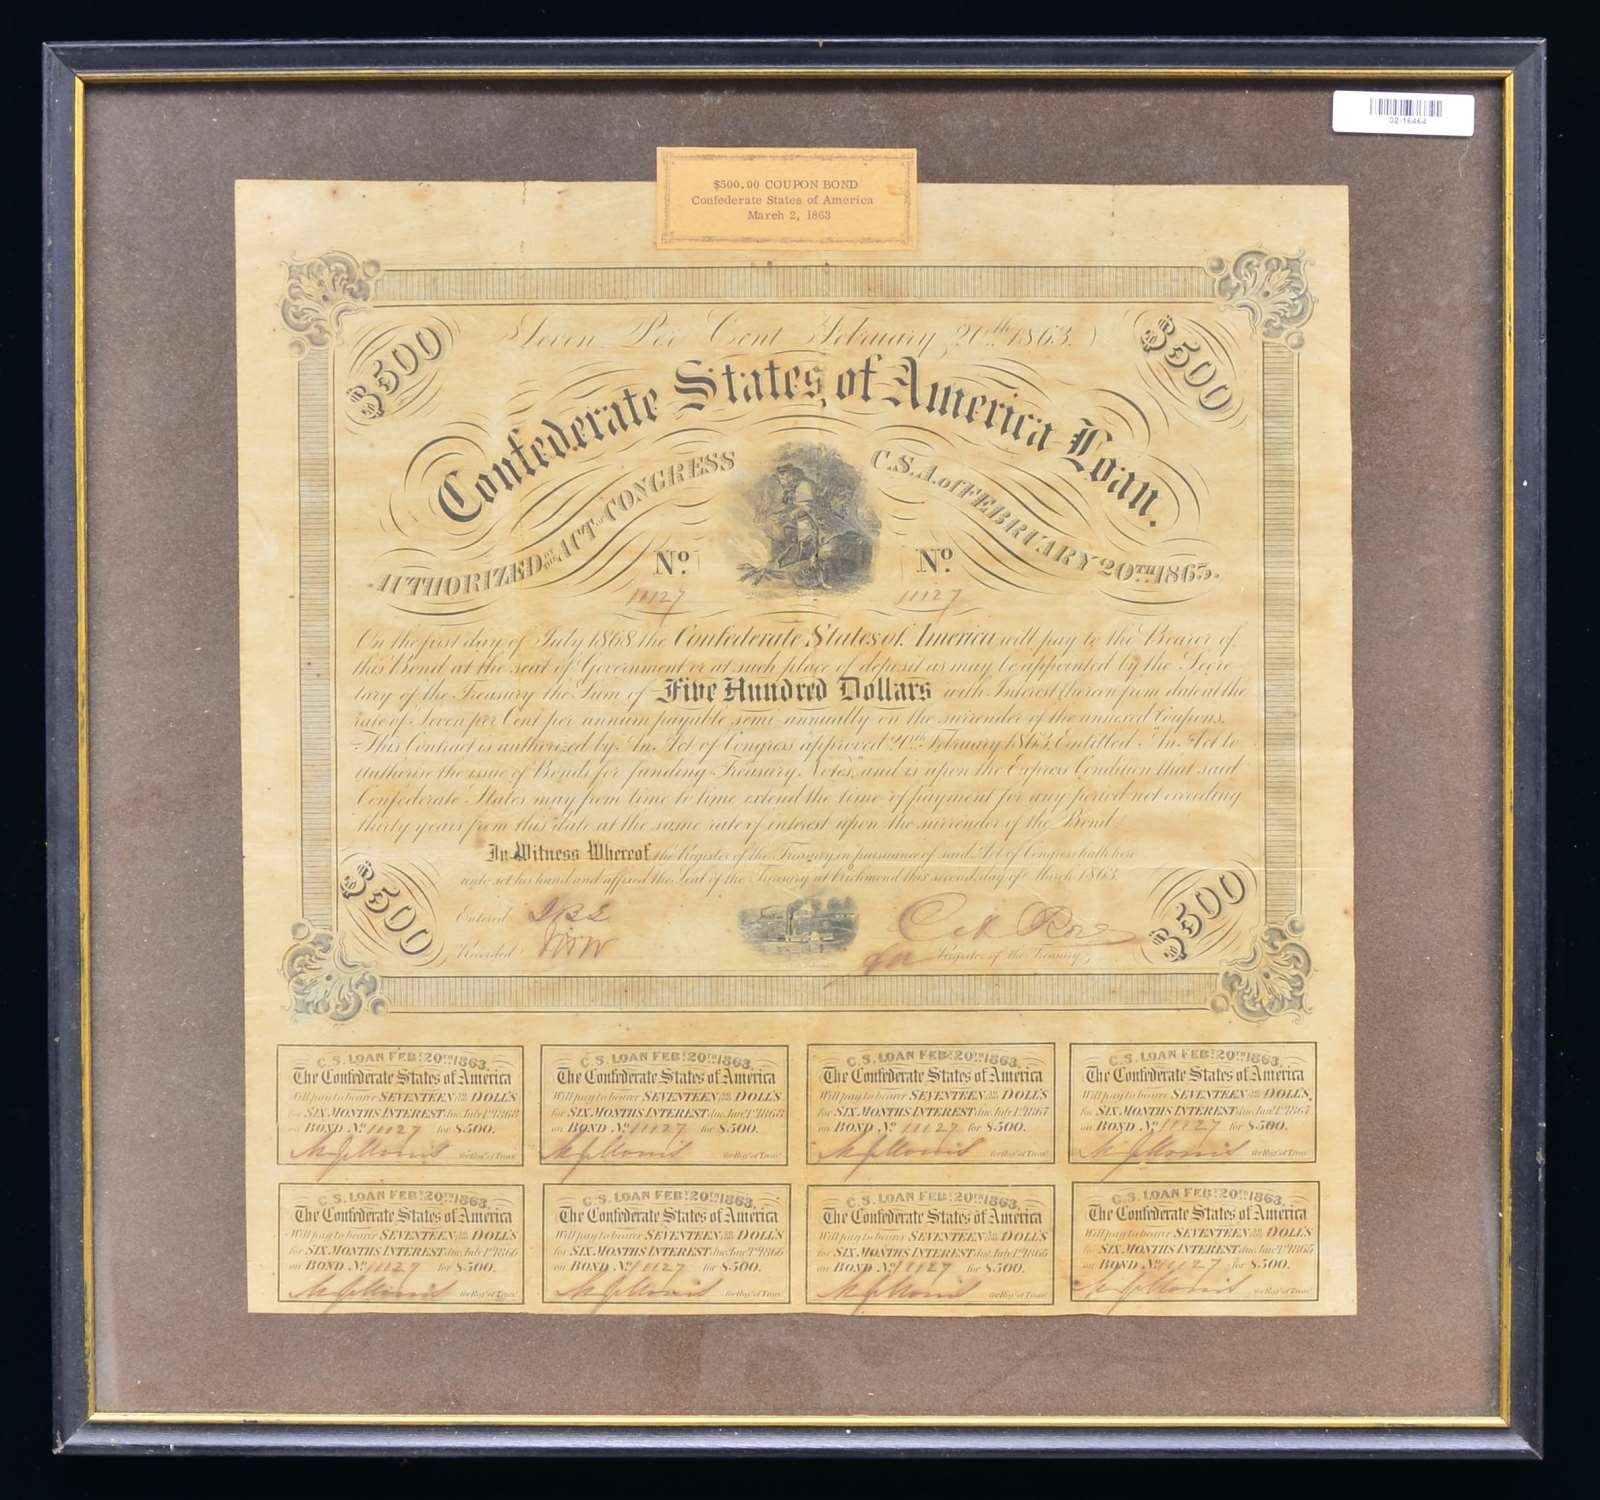 02-16464
$500.00 COUPON BOND
Confederate States of America
March 2, 1863
Seven Per Cent February 20th 1863.
$500
$500
Confederate States of America Loan.
AUTHORIZED BY THE ACT OF CONGRESS C.S.A. of FEBRUARY 20TH 1863.
No. No.
11127 11127
On the first day of July 1868 the Confederate States of America will pay to the Bearer of
this Bond at the seat of Government or at such place of deposit as may be appointed by the Secre
tary of the Treasury the Sum of Five Hundred Dollars with Interest thereon from date at the
rate of Seven per Cent per annum payable semi-annually on the surrender of the annexed Coupons.
This Contract is authorized by An Act of Congress approved 20th February 1863, Entitled "An Act to
authorise the issue of Bonds for funding Treasury Notes", and is upon the Express Condition that said
Confederate States may from time to time extend the time of payment for any period not exceeding
thirty years from this date at the same rate of interest upon the surrender of the Bond.
In Witness Whereof the Register of the Treasury in pursuance of said Act of Congress hath here
unto set his hand and affixed the Seal of the Treasury at Richmond this second day of March 1863.
$500
$500
Entered
Recorded
Register of the Treasury
C.S. LOAN FEB. 20TH 1863.
The Confederate States of America
Will pay to bearer SEVENTEEN 50/100 DOLL'S
for SIX MONTHS INTEREST due July 1st 1868
on BOND No. 11127 for $500.
for Regr. of Treasy.
C.S. LOAN FEB. 20TH 1863.
The Confederate States of America
Will pay to bearer SEVENTEEN 50/100 DOLL'S
for SIX MONTHS INTEREST due Jany. 1st 1868
on BOND No. 11127 for $500.
for Regr. of Treasy.
C.S. LOAN FEB. 20TH 1863.
The Confederate States of America
Will pay to bearer SEVENTEEN 50/100 DOLL'S
for SIX MONTHS INTEREST due July 1st 1867
on BOND No. 11127 for $500.
for Regr. of Treasy.
C.S. LOAN FEB. 20TH 1863.
The Confederate States of America
Will pay to bearer SEVENTEEN 50/100 DOLL'S,
for SIX MONTHS INTEREST due Jany. 1st 1867
on BOND No. 11127 for $500.
for Regr. of Treasy.
C.S. LOAN FEB. 20TH 1863.
The Confederate States of America
Will pay to bearer SEVENTEEN 50/100 DOLL'S
for SIX MONTHS INTEREST due July 1st 1866
on BOND No. 11127 for $500.
for Regr. of Treasy.
C.S. LOAN FEB. 20TH 1863.
The Confederate States of America
Will pay to bearer SEVENTEEN 50/100 DOLL'S
for SIX MONTHS INTEREST due Jany. 1st 1866
on BOND No. 11127 for $500.
for Regr. of Treasy.
C.S. LOAN FEB. 20TH 1863.
The Confederate States of America
Will pay to bearer SEVENTEEN 50/100 DOLL'S
for SIX MONTHS INTEREST due July 1st 1865
on BOND No. 11127 for $500.
for Regr. of Treasy.
C.S. LOAN FEB. 20TH 1863.
The Confederate States of America
Will pay to bearer SEVENTEEN 50/100 DOLL'S
for SIX MONTHS INTEREST due Jany. 1st 1865
on BOND No. 11127 for $500.
for Regr. of Treasy.